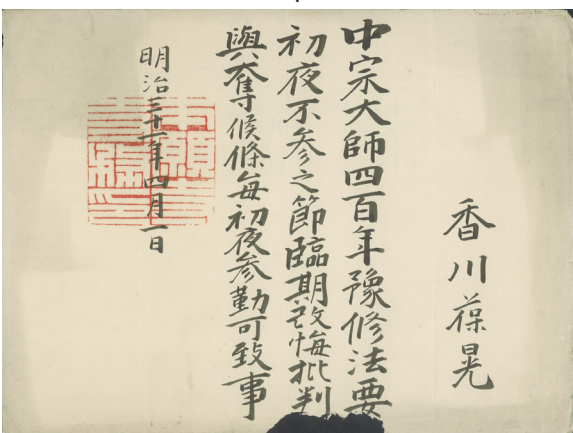 香川葆晃
中宗大師四百年豫修法要
初夜不参之節臨期改悔批判
與奪候條每初夜参勤可致事
明治三十一年四月一日